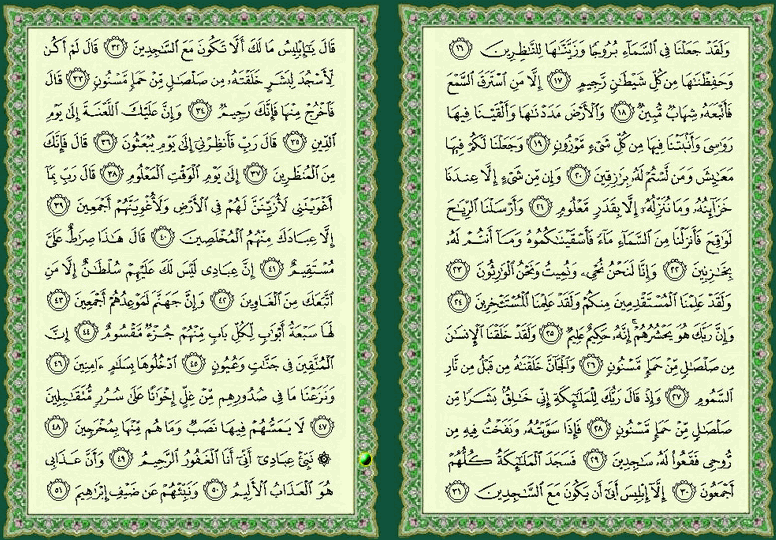 وَلَقَدْ جَعَلْنَا فِى ٱلسَّمَآءِ بُرُوجًا وَزَيَّنَّـٰهَا لِلنَّـٰظِرِينَ ١٦
وَحَفِظْنَـٰهَا مِن كُلِّ شَيْطَـٰنٍ رَّجِيمٍ ١٧ إِلَّا مَنِ ٱسْتَرَقَ ٱلسَّمْعَ
فَأَتْبَعَهُۥ شِهَابٌ مُّبِينٌ ١٨ وَٱلْأَرْضَ مَدَدْنَـٰهَا وَأَلْقَيْنَا فِيهَا
رَوَٰسِىَ وَأَنۢبَتْنَا فِيهَا مِن كُلِّ شَىْءٍ مَّوْزُونٍ ١٩ وَجَعَلْنَا لَكُمْ فِيهَا
مَعَـٰيِشَ وَمَن لَّسْتُمْ لَهُۥ بِرَٰزِقِينَ ٢٠ وَإِن مِّن شَىْءٍ إِلَّا عِندَنَا
خَزَآئِنُهُۥ وَمَا نُنَزِّلُهُۥٓ إِلَّا بِقَدَرٍ مَّعْلُومٍ ٢١ وَأَرْسَلْنَا ٱلرِّيَـٰحَ
لَوَٰقِحَ فَأَنزَلْنَا مِنَ ٱلسَّمَآءِ مَآءً فَأَسْقَيْنَـٰكُمُوهُ وَمَآ أَنتُمْ لَهُۥ
بِخَـٰزِنِينَ ٢٢ وَإِنَّا لَنَحْنُ نُحْىِۦ وَنُمِيتُ وَنَحْنُ ٱلْوَٰرِثُونَ ٢٣
وَلَقَدْ عَلِمْنَا ٱلْمُسْتَقْدِمِينَ مِنكُمْ وَلَقَدْ عَلِمْنَا ٱلْمُسْتَـْٔخِرِينَ ٢٤
وَإِنَّ رَبَّكَ هُوَ يَحْشُرُهُمْ ۚ إِنَّهُۥ حَكِيمٌ عَلِيمٌ ٢٥ وَلَقَدْ خَلَقْنَا ٱلْإِنسَـٰنَ
مِن صَلْصَـٰلٍ مِّنْ حَمَإٍ مَّسْنُونٍ ٢٦ وَٱلْجَآنَّ خَلَقْنَـٰهُ مِن قَبْلُ مِن نَّارِ
ٱلسَّمُومِ ٢٧ وَإِذْ قَالَ رَبُّكَ لِلْمَلَـٰٓئِكَةِ إِنِّى خَـٰلِقٌۢ بَشَرًا مِّن
صَلْصَـٰلٍ مِّنْ حَمَإٍ مَّسْنُونٍ ٢٨ فَإِذَا سَوَّيْتُهُۥ وَنَفَخْتُ فِيهِ مِن
رُّوحِى فَقَعُوا۟ لَهُۥ سَـٰجِدِينَ ٢٩ فَسَجَدَ ٱلْمَلَـٰٓئِكَةُ كُلُّهُمْ
أَجْمَعُونَ ٣٠ إِلَّآ إِبْلِيسَ أَبَىٰٓ أَن يَكُونَ مَعَ ٱلسَّـٰجِدِينَ ٣١
قَالَ يَـٰٓإِبْلِيسُ مَا لَكَ أَلَّا تَكُونَ مَعَ ٱلسَّـٰجِدِينَ ٣٢ قَالَ لَمْ أَكُن
لِّأَسْجُدَ لِبَشَرٍ خَلَقْتَهُۥ مِن صَلْصَـٰلٍ مِّنْ حَمَإٍ مَّسْنُونٍ ٣٣ قَالَ
فَٱخْرُجْ مِنْهَا فَإِنَّكَ رَجِيمٌ ٣٤ وَإِنَّ عَلَيْكَ ٱللَّعْنَةَ إِلَىٰ يَوْمِ
ٱلدِّينِ ٣٥ قَالَ رَبِّ فَأَنظِرْنِىٓ إِلَىٰ يَوْمِ يُبْعَثُونَ ٣٦ قَالَ فَإِنَّكَ
مِنَ ٱلْمُنظَرِينَ ٣٧ إِلَىٰ يَوْمِ ٱلْوَقْتِ ٱلْمَعْلُومِ ٣٨ قَالَ رَبِّ بِمَآ
أَغْوَيْتَنِى لَأُزَيِّنَنَّ لَهُمْ فِى ٱلْأَرْضِ وَلَأُغْوِيَنَّهُمْ أَجْمَعِينَ ٣٩
إِلَّا عِبَادَكَ مِنْهُمُ ٱلْمُخْلَصِينَ ٤٠ قَالَ هَـٰذَا صِرَٰطٌ عَلَىَّ
مُسْتَقِيمٌ ٤١ إِنَّ عِبَادِى لَيْسَ لَكَ عَلَيْهِمْ سُلْطَـٰنٌ إِلَّا مَنِ
ٱتَّبَعَكَ مِنَ ٱلْغَاوِينَ ٤٢ وَإِنَّ جَهَنَّمَ لَمَوْعِدُهُمْ أَجْمَعِينَ ٤٣
لَهَا سَبْعَةُ أَبْوَٰبٍ لِّكُلِّ بَابٍ مِّنْهُمْ جُزْءٌ مَّقْسُومٌ ٤٤ إِنَّ
ٱلْمُتَّقِينَ فِى جَنَّـٰتٍ وَعُيُونٍ ٤٥ ٱدْخُلُوهَا بِسَلَـٰمٍ ءَامِنِينَ ٤٦
وَنَزَعْنَا مَا فِى صُدُورِهِم مِّنْ غِلٍّ إِخْوَٰنًا عَلَىٰ سُرُرٍ مُّتَقَـٰبِلِينَ
٤٧ لَا يَمَسُّهُمْ فِيهَا نَصَبٌ وَمَا هُم مِّنْهَا بِمُخْرَجِينَ ٤٨
۞ نَبِّئْ عِبَادِىٓ أَنِّىٓ أَنَا ٱلْغَفُورُ ٱلرَّحِيمُ ٤٩ وَأَنَّ عَذَابِى
هُوَ ٱلْعَذَابُ ٱلْأَلِيمُ ٥٠ وَنَبِّئْهُمْ عَن ضَيْفِ إِبْرَٰهِيمَ ٥١